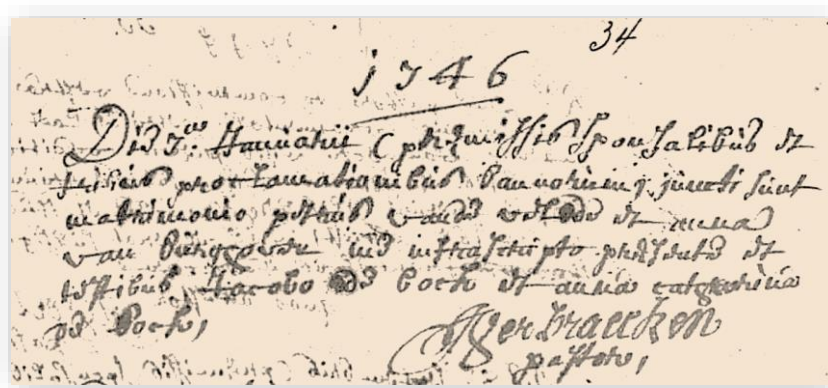 34
1746
Die 7ma Januarii (præmissis sponsalibus et
tribus proclamationibus bannorum) juncti sunt
matrimonio petrus vande velde et anna
van me infrascripto præsente et
testibus Jacobo de bock et anna catharina
de bock,
pastor,